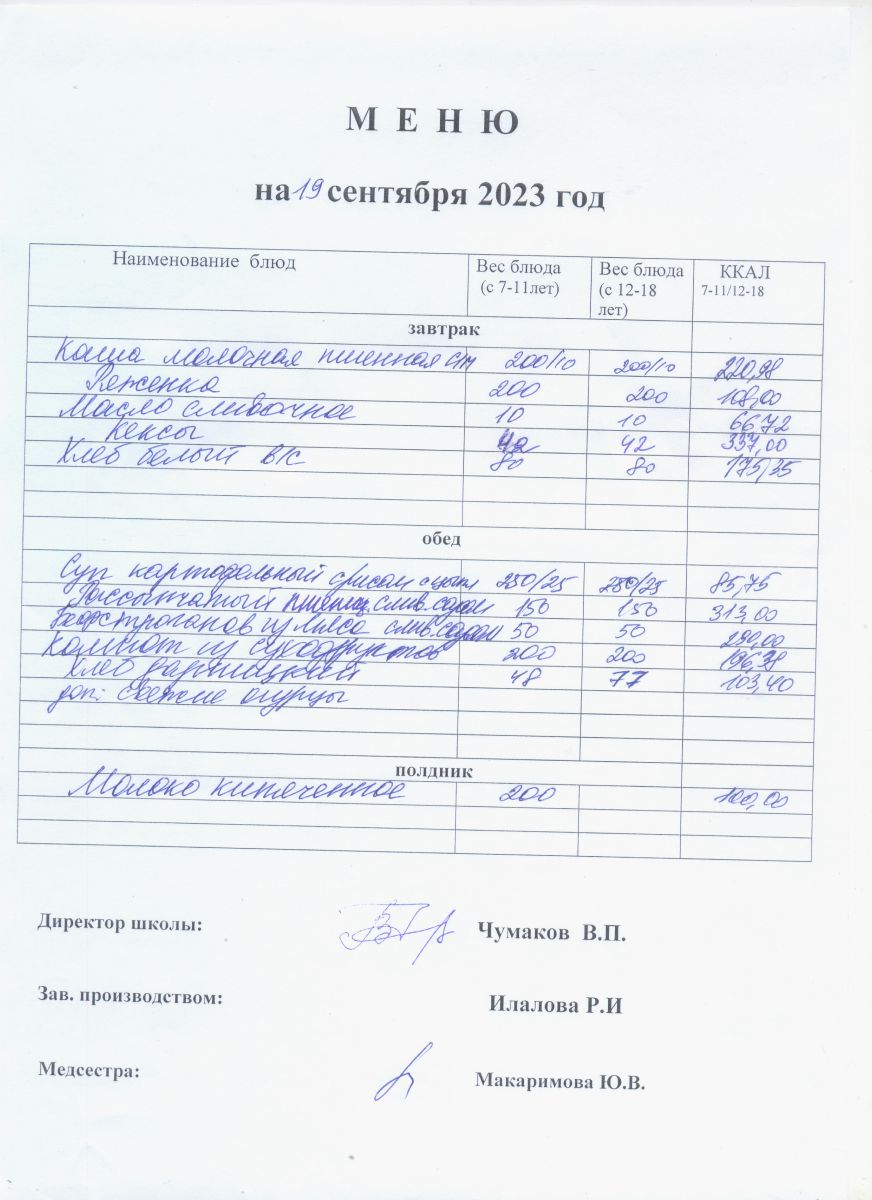 М Е Н Ю
на 19 сентября 2023 год
Наименование блюд Вес блюда (с 7-11лет) Вес блюда (с 12-18 лет) ККАЛ 7-11/12-18
завтрак
Каша молочная пшенная с/м 200/10 200/10 220,98
Ряженка 200 200 108,00
Масло сливочное 10 10 66,72
Кексы 42 42 337,00
Хлеб белый в/с 80 80 175,35
обед
Суп картофельный с рисом 250/25 250/25 85,75
Рассыпчатый слив. 150 150 313,00
Бефстроганов из мяса слив. 50 50 290,00
Компот из сухофруктов 200 200 196,38
Хлеб дарницкий 48 77 103,40
доп: свежие огурцы
полдник
Молоко кипяченное 200 100,00
Директор школы: Чумаков В.П.
Зав. производством: Илалова Р.И
Медсестра: Макаримова Ю.В.